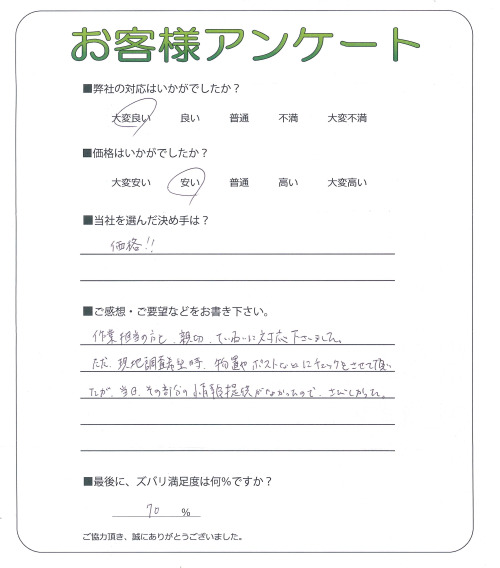 お客様アンケート
■弊社の対応はいかがでしたか？
大変良い 良い 普通 不満 大変不満
■価格はいかがでしたか？
大変安い 安い 普通 高い 大変高い
■当社を選んだ決め手は？
価格!!
■ご感想・ご要望などをお書き下さい。
作業担当の方も、親切、ていねいに対応下さいました。
ただ、現地調査 時、物置やポストなどにチェックをさせて頂い
たが、当日、その部分の情報提供がなかったので、さびしかった。
■最後に、ズバリ満足度は何%ですか？
70 %
ご協力頂き、誠にありがとうございました。